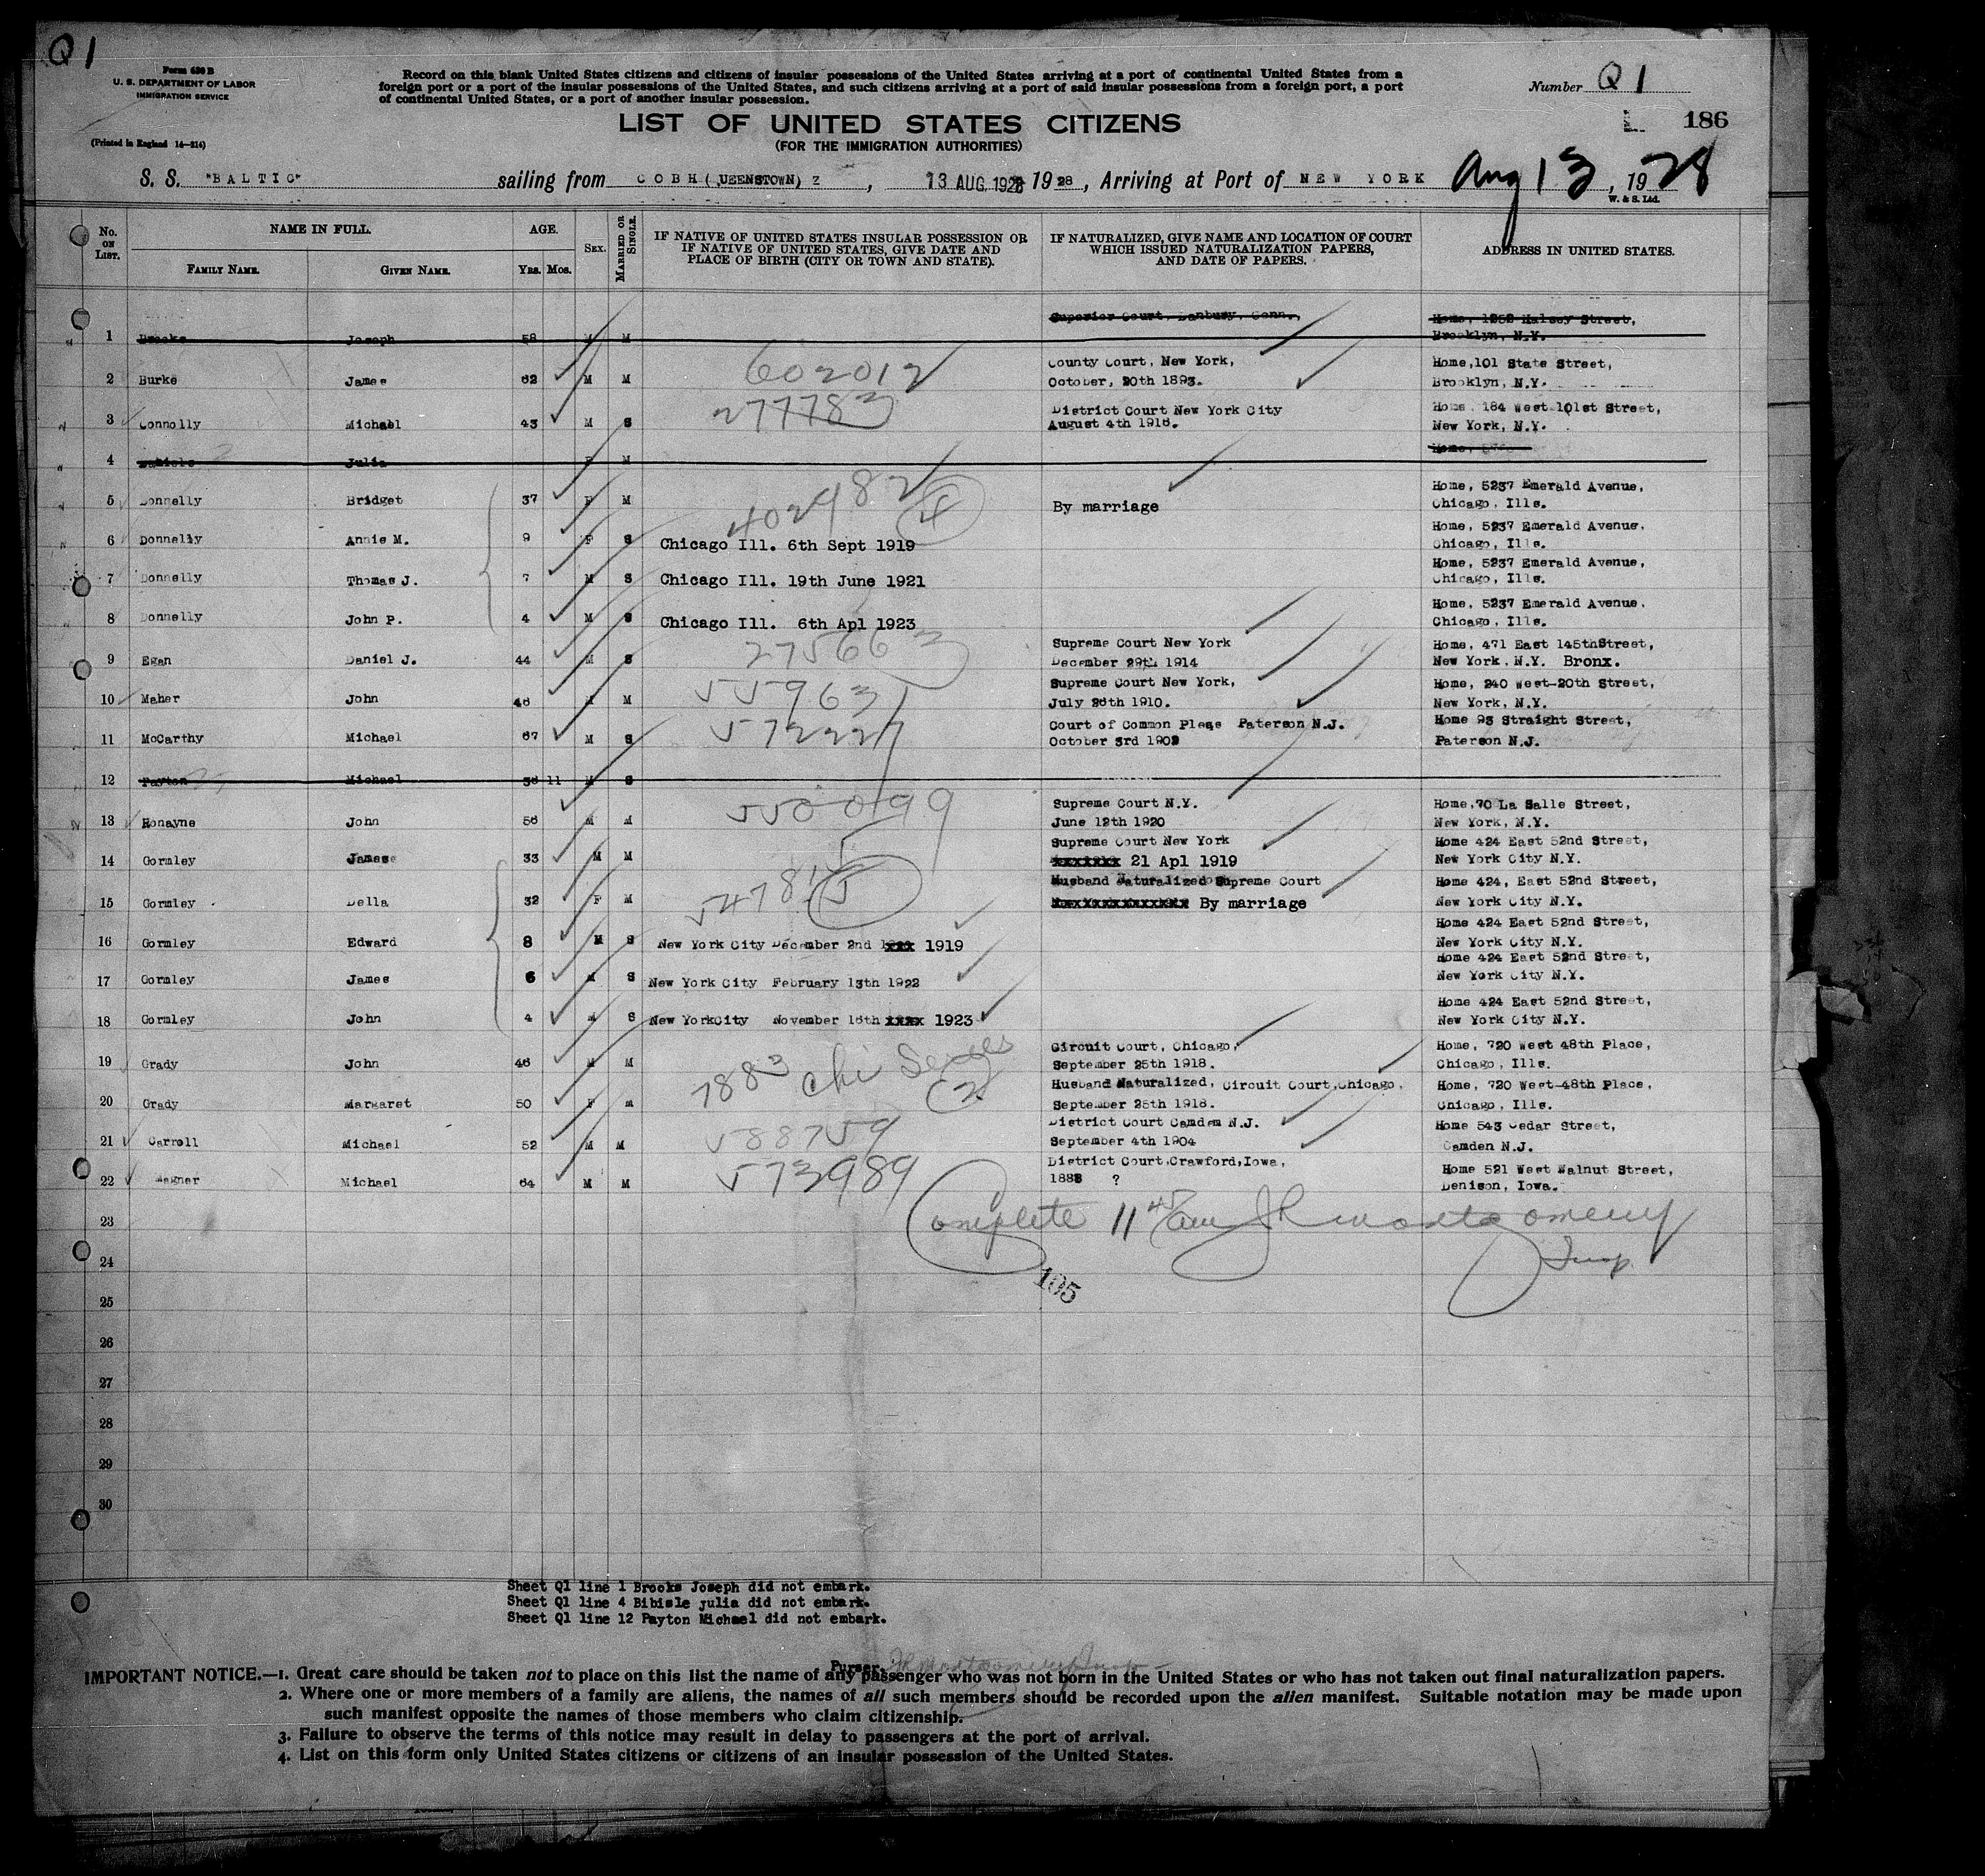 Q1
Form 630 B
U. S. DEPARTMENT OF LABOR
IMMIGRATION SERVICE
(Printed in England 14—214)
Record on this blank United States citizens and citizens of insular possessions of the United States arriving at a port of continental United States from a
foreign port or a port of the insular possessions of the United States, and such citizens arriving at a port of said insular possessions from a foreign port, a port
of continental United States, or a port of another insular possession.
Number Q 1
LIST OF UNITED STATES CITIZENS
(FOR THE IMMIGRATION AUTHORITIES)
186
S. S. "BALTIC" sailing from COBH (UEENSTOWN) Z , 13 AUG. 1928 1928, Arriving at Port of NEW YORK Aug 13, 1928
W. & S. Ltd.
No. ON LIST. NAME IN FULL. FAMILY NAME. GIVEN NAME. AGE. YRS. MOS. SEX. MARRIED OR SINGLE. IF NATIVE OF UNITED STATES INSULAR POSSESSION OR IF NATIVE OF UNITED STATES, GIVE DATE AND PLACE OF BIRTH (CITY OR TOWN AND STATE). IF NATURALIZED, GIVE NAME AND LOCATION OF COURT WHICH ISSUED NATURALIZATION PAPERS, AND DATE OF PAPERS. ADDRESS IN UNITED STATES.
1 Brooks Joseph 58 M M Superior Court, Danbury, Conn., Home, 1252 Halsey Street, Brooklyn, N.Y.
2 Burke James 62 M M 602012 County Court, New York, October, 20th 1893. Home,101 State Street, Brooklyn, N.Y.
3 Connolly Michael 43 M S 277783 District Court New York City August 4th 1916. Home, 184 West 101st Street, New York, N.Y.
4 Julia F M Home,
5 Donnelly Bridget 37 F M 402982 4 By marriage Home, 5237 Emerald Avenue, Chicago, Ills.
6 Donnelly Annie M. 9 F S Chicago Ill. 6th Sept 1919 Home, 5237 Emerald Avenue. Chicago, Ills.
7 Donnelly Thomas J. 7 M S Chicago Ill. 19th June 1921 Home, 5237 Emerald Avenue, Chicago, Ills.
8 Donnelly John P. 4 M S Chicago Ill. 6th Apl 1923 Home, 5237 Emerald Avenue. Chicago, Ills.
9 Egan Daniel J. 44 M S 275663 Supreme Court New York December 29th 1914 Home, 471 East 145thStreet, New York, N.Y. Bronx.
10 Maher John 46 M M 559631 Supreme Court New York, July 26th 1910. Home, 240 West-20th Street, New York, N.Y.
11 McCarthy Michael 67 M S 572227 Court of Common Pleas Paterson N.J. October 3rd 1902 Home 93 Straight Street, Paterson N.J.
12 Payton Michael 36 11 M S
13 Ronayne John 56 M M 550099 Supreme Court N.Y. June 12th 1920 Home,70 La Salle Street, New York, N.Y.
14 Gormley James 33 M M Supreme Court New York xxxxxxx 21 Apl 1919 Home 424 East 52nd Street, New York City N.Y.
15 Gormley Della 32 F M 54781 5 Husband Naturalized Supreme Court By marriage Home 424, East 52nd Street, New York City N.Y.
16 Gormley Edward 8 M S New York City December 2nd 1919 Home 424 East 52nd Street, New York City N.Y.
17 Gormley James 6 M S New York City February 13th 1922 Home 424 East 52nd Street, New York City N.Y.
18 Gormley John 4 M S New YorkCity November 16th xxxx 1923 Home 424 East 52nd Street, New York City N.Y.
19 Grady John 46 M M 7883 Chi Series Circuit Court, Chicago, September 25th 1918. Home, 720 West 48th Place, Chicago, Ills.
20 Grady Margaret 50 F M 2 Husband Naturalized, Circuit Court,Chicago, September 25th 1918. Home, 720 West-48th Place, Chicago, Ills.
21 Carroll Michael 52 M M 588759 District Court Camden N.J. September 4th 1904 Home 543 Cedar Street, Camden N.J.
22 Wagner Michael 64 M M 573989 District Court,Crawford,Iowa, 1888 ? Home 521 West Walnut Street, Denison, Iowa.
23
Complete 11 45 am JH Montgomery
24
Insp.
105
25
26
27
28
29
30
Sheet Q1 line 1 Brooks Joseph did not embark.
Sheet Q1 line 4 Bibisle julia did not embark.
Sheet Q1 line 12 Payton Michael did not embark.
Purser.
IMPORTANT NOTICE.—1. Great care should be taken not to place on this list the name of any passenger who was not born in the United States or who has not taken out final naturalization papers.
2. Where one or more members of a family are aliens, the names of all such members should be recorded upon the alien manifest. Suitable notation may be made upon
such manifest opposite the names of those members who claim citizenship.
3. Failure to observe the terms of this notice may result in delay to passengers at the port of arrival.
4. List on this form only United States citizens or citizens of an insular possession of the United States.